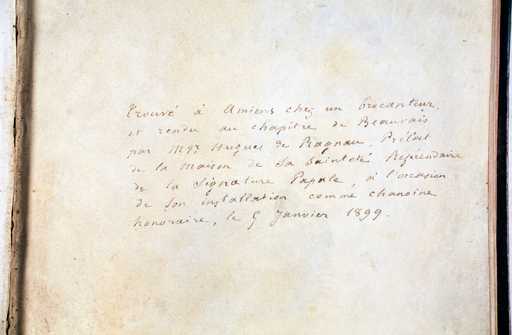 Trouvé à Amiens chez un brocanteur,
et rendu au chapitre de Beauvais
par Mgr Hugues de Ragnau, Prélat
de la Maison de Sa Sainteté Référendaire
de la Signature Papale, à l'occasion
de son installation comme chanoine
honoraire, le 5 Janvier 1899.